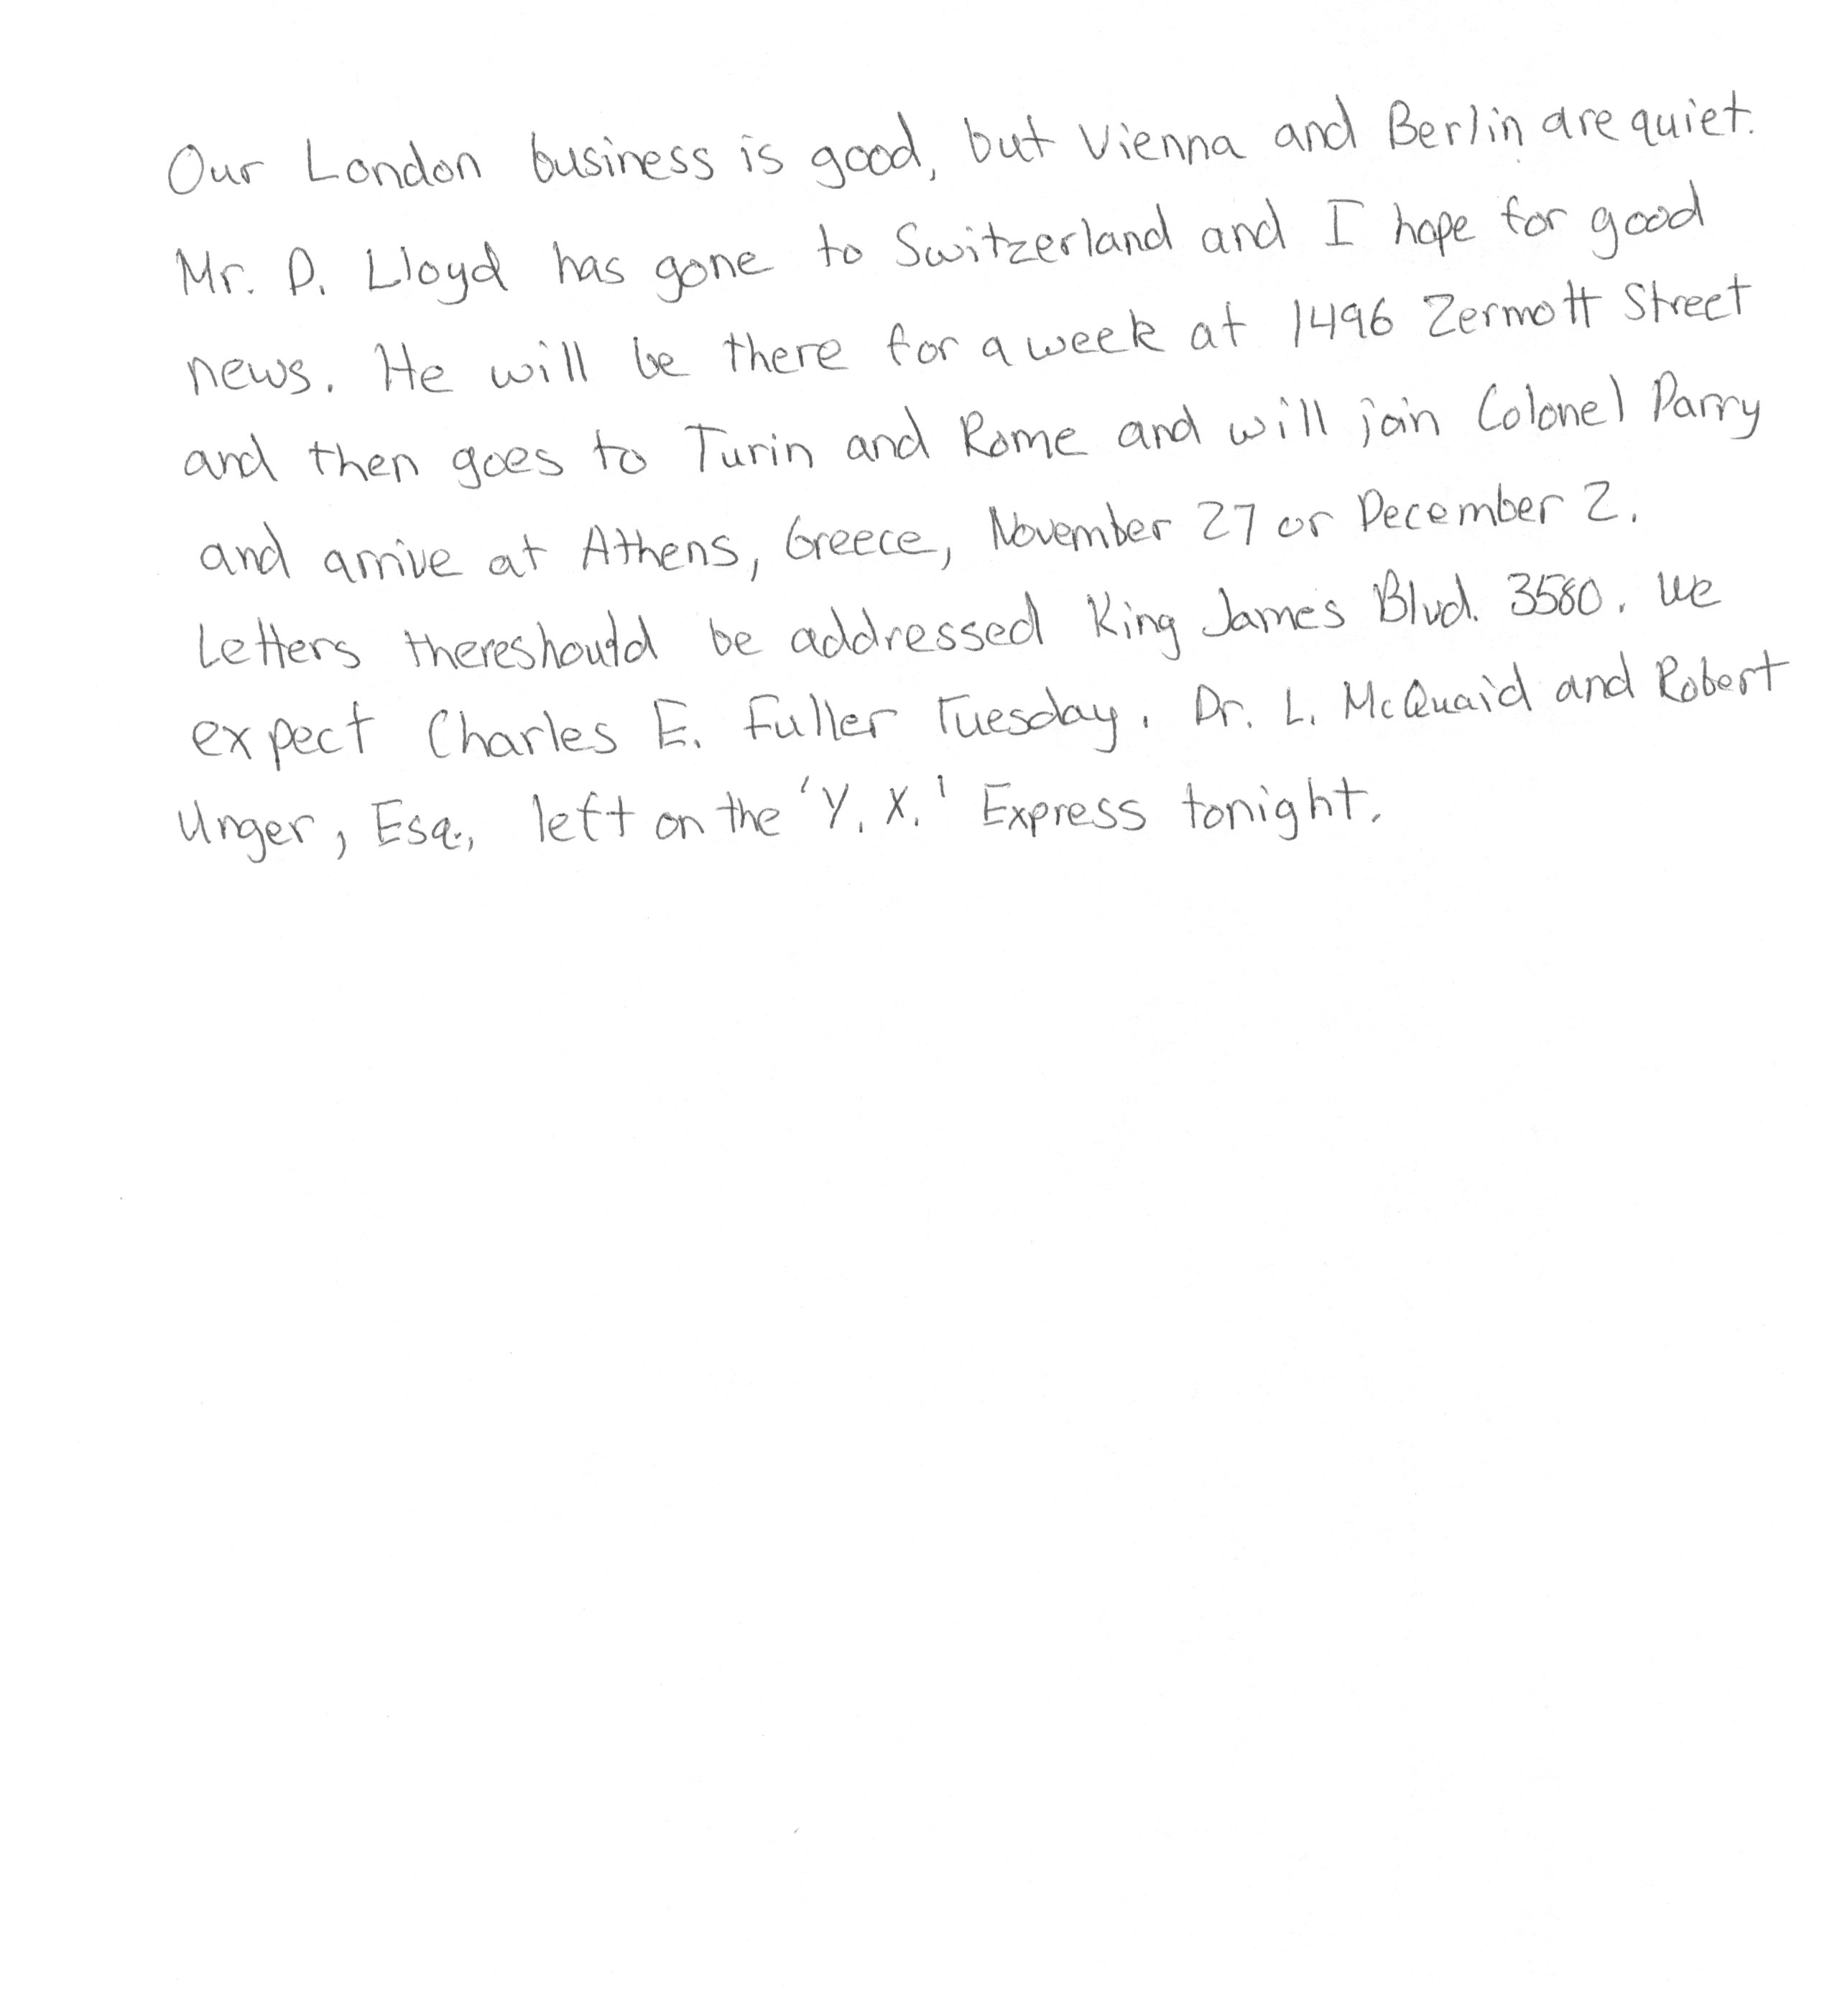 Our London business is good, but Vienna and Berlin are quiet.
Mr. D. Lloyd has gone to Switzerland and I hope for good
news. He will be there for a week at 1496 Zermott Street
and then goes to Turin and Rome and will join Colonel Parry
and arrive at Athens, Greece, November 27 or December 2.
Letters there should be addressed King James Blvd. 3580. We
expect Charles E. Fuller Tuesday. Dr. L. McQuaid and Robert
Unger, Esq., left on the 'Y. X.' Express tonight.